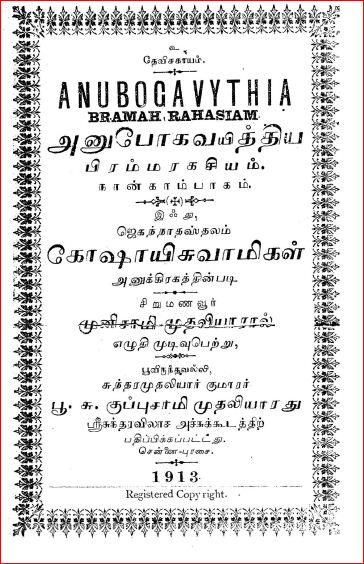 உ
தேவிசகாயம்.
ANUBOGAVYTHIA
BRAMAH, RAHASIAM.
அனுபோகவயித்திய
பிரம்மரகசியம்.
நான்காம்பாகம்.
இஃது,
ஜெகந்நாதஸ்தலம்
கோஷாயிசுவாமிகள்
அனுக்கிரகத்தின்படி
சிறுமணவூர்
முனிசாமி முதலியாரால்
எழுதி முடிவுபெற்று,
பூவிருந்தவல்லி,
சுந்தரமுதலியார் குமாரர்
பூ. சு. குப்புசாமி முதலியாரது
ஸ்ரீசுந்தரவிலாச அச்சுக்கூடத்திற்
பதிப்பிக்கப்பட்டது.
சென்னை-புரசை.
1913
Registered Copyright.